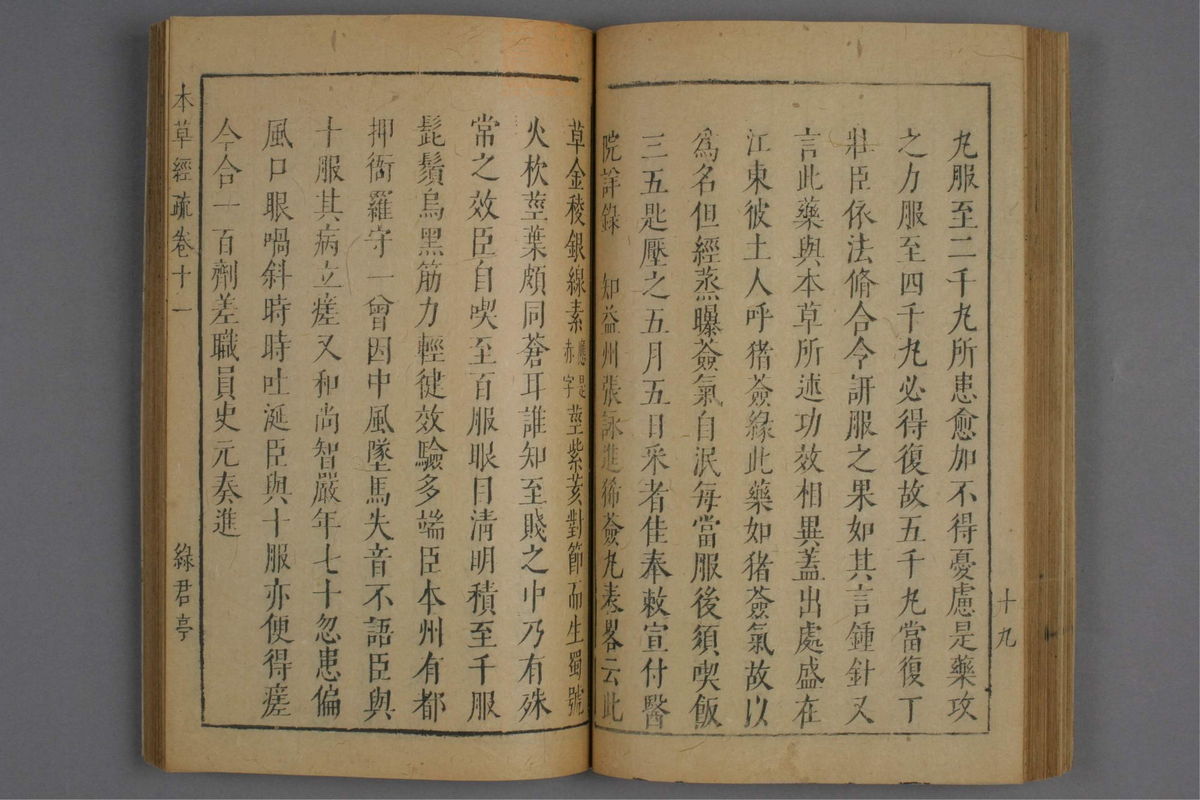 十九
丸服至二千丸所患愈加不得憂慮是藥攻
之力服至四千丸必得復故五千丸當復丁
壯臣依法脩合令訝服之果如其言鍾針又
言此藥與本草所述功效相異蓋出處盛在
江東彼土人呼猪薟緣此藥如猪薟氣故以
為名但經蒸曝薟氣自泯每當服後須喫飯
三五匙壓之五月五日采者佳奉敕宣付醫
院詳錄 知益州張詠進豨薟丸表畧云此
草金稜銀線素應是赤字莖紫荄對節而生蜀號
火杴莖葉頗同蒼耳誰知至賤之中乃有殊
常之效臣自喫至百服眼目清明積至千服
髭鬚烏黑筋力輕健效驗多端臣本州有都
押衙羅守一曾因中風墜馬失音不語臣與
十服其病立瘥又和尚智嚴年七十忽患偏
風口眼喎斜時時吐涎臣與十服亦便得瘥
今合一百劑差職員史元奏進
本草經疏卷十一
綠君亭